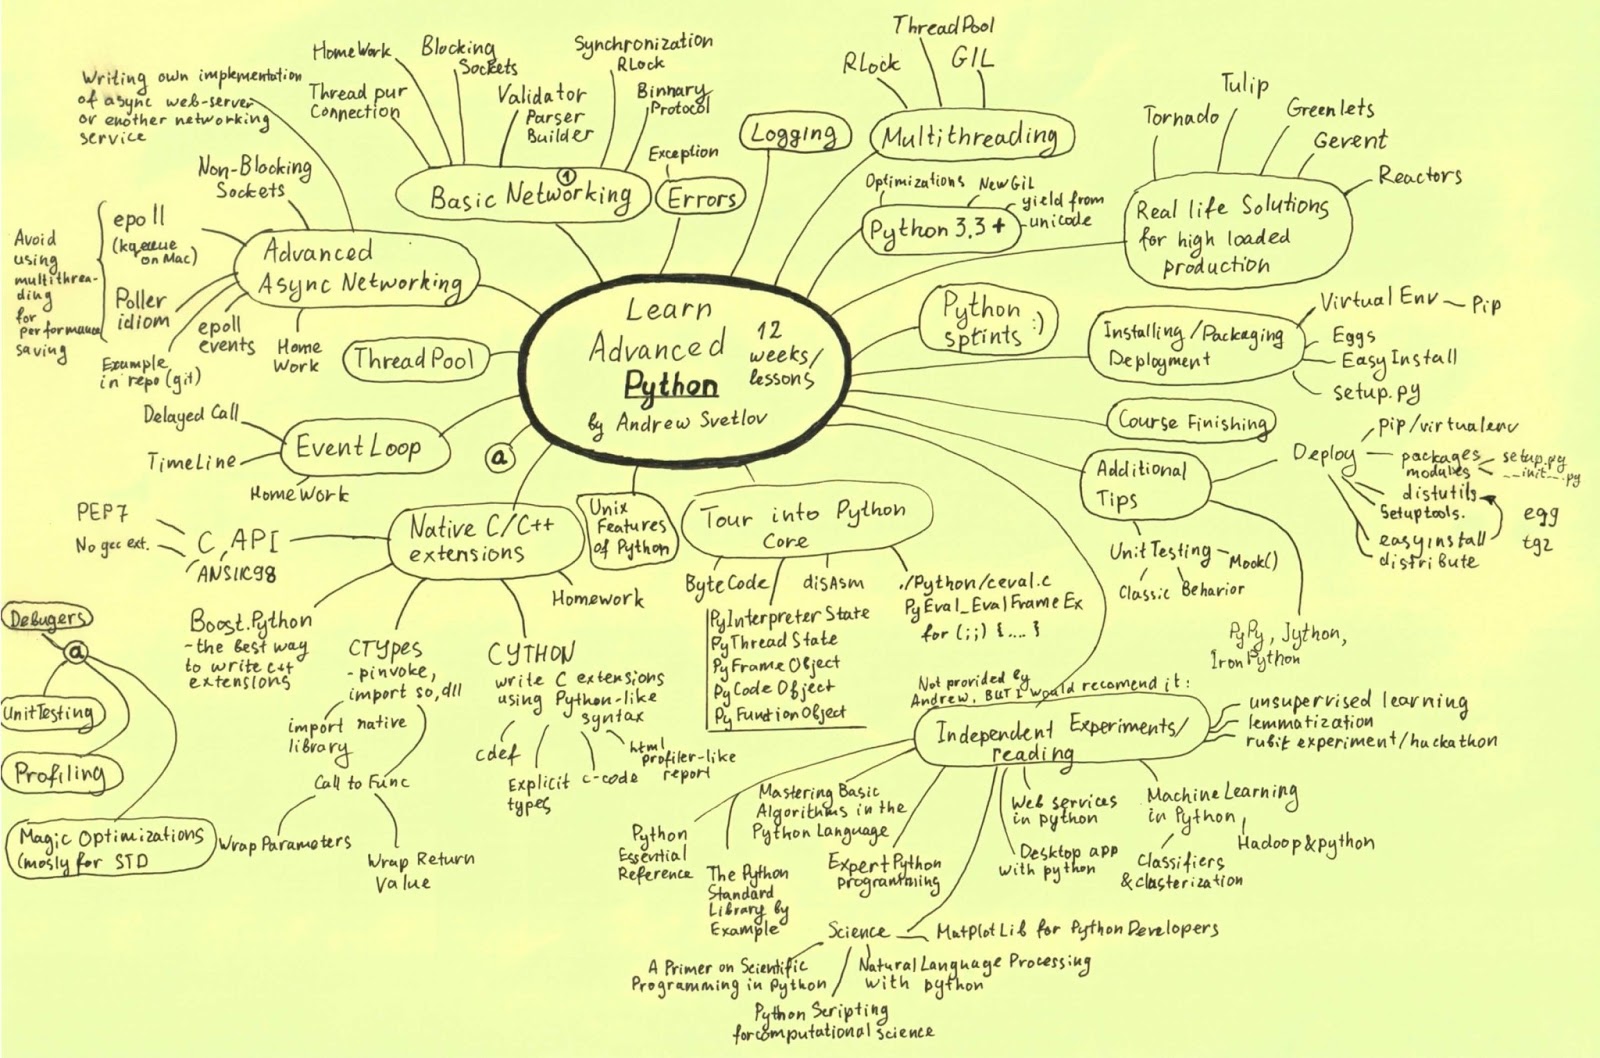 Learn
Advanced
Python
12
weeks/
lessons
by Andrew Svetlov
Basic Networking
1
HomeWork
Blocking
Sockets
Thread pur
Connection
Validator
Parser
Builder
Synchronization
RLock
Binnary
Protocol
Exception
Errors
Logging
Multithreading
RLock
ThreadPool
GIL
Python 3,3 +
Optimizations
NewGil
yield from
unicode
Real life Solutions
for high loaded
production
Tornado
Tulip
Greenlets
Gevent
Reactors
Python
sptints :)
Installing/Packaging
Deployment
Virtual Env
Pip
Eggs
Easy Install
setup.py
Course Finishing
Additional
Tips
Deploy
pip/virtualenv
packages
modules
setup.py
__init__.py
distutils
Setuptools.
easyinstall
distribute
egg
tgz
UnitTesting
Mook()
Classic
Behavior
PyPy, Jython,
IronPython
Not provided by
Andrew, BUT I would recomend it:
Independent Experiments/
reading
unsupervised learning
lemmatization
rubit experiment/hackathon
Machine Learning
in Python,
Hadoop & python
Classifiers
& clasterization
Web services
in python
Desktop app
with python
Expert Python
programming
Mastering Basic
Algorithms in the
Python Language
Python
Essential
Reference
The Python
Standard
Library by
Example
Science
MatPlotLib for Python Developers
A Primer on Scientific
Programming in Python
Natural Language Processing
with python
Python Scripting
for computational science
Tour into Python
Core
ByteCode
disAsm
PyInterpreter State
PyThread State
PyFrame Object
PyCode Object
PyFuntionObject
./Python/ceval.c
PyEval_EvalFrameEx
for (;;) {....}
Unix
Features
of Python
Native C/C++
extensions
Homework
C API
PEP7
No gcc ext.
ANSIIC98
Boost.Python
-the best way
to write c++
extensions
CTYpes
-pinvoke,
import so,dll
import native
library
Call to Func
Wrap Parameters
Wrap Return
Value
CYTHON
write C extensions
using Python-like
syntax
cdef
Explicit
types
c-code
html
profiler-like
report
a
Event Loop
Delayed Call
TimeLine
HomeWork
ThreadPool
Advanced
Async Networking
Writing own implementation
of async web-server
or enother networking
service
Non-Blocking
Sockets
epoll
(kqueue
on Mac)
Poller
idiom
Avoid
using
multithrea-
ding
for
performance
saving
Example
in repo (git)
epoll
events
Home
Work
Debugers
a
UnitTesting
Profiling
Magic Optimizations
(mosly for STD